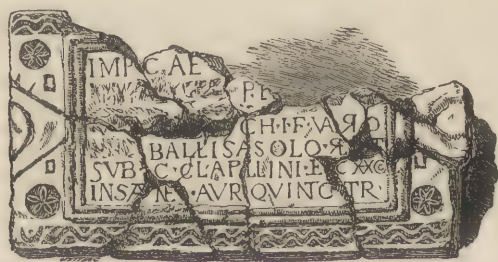 IMP CAE
P.E
CH·I·F·VARO
BALLIS A SOLO·RE T
SVB·C·CLAP LLINI·
INSA NE·AVR QVINTO·TR·